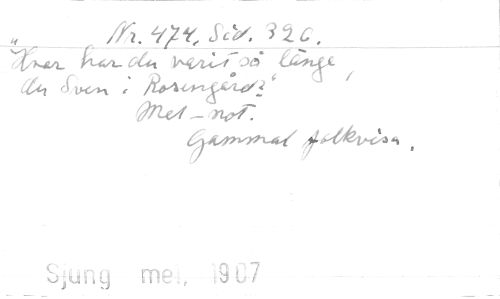 Nr. 474, Sid. 326.
"Hvar har du varit så länge,
du Sven i Rosengård?"
Mel-not.
Gammal folkvisa.
Sjung mel, 1907